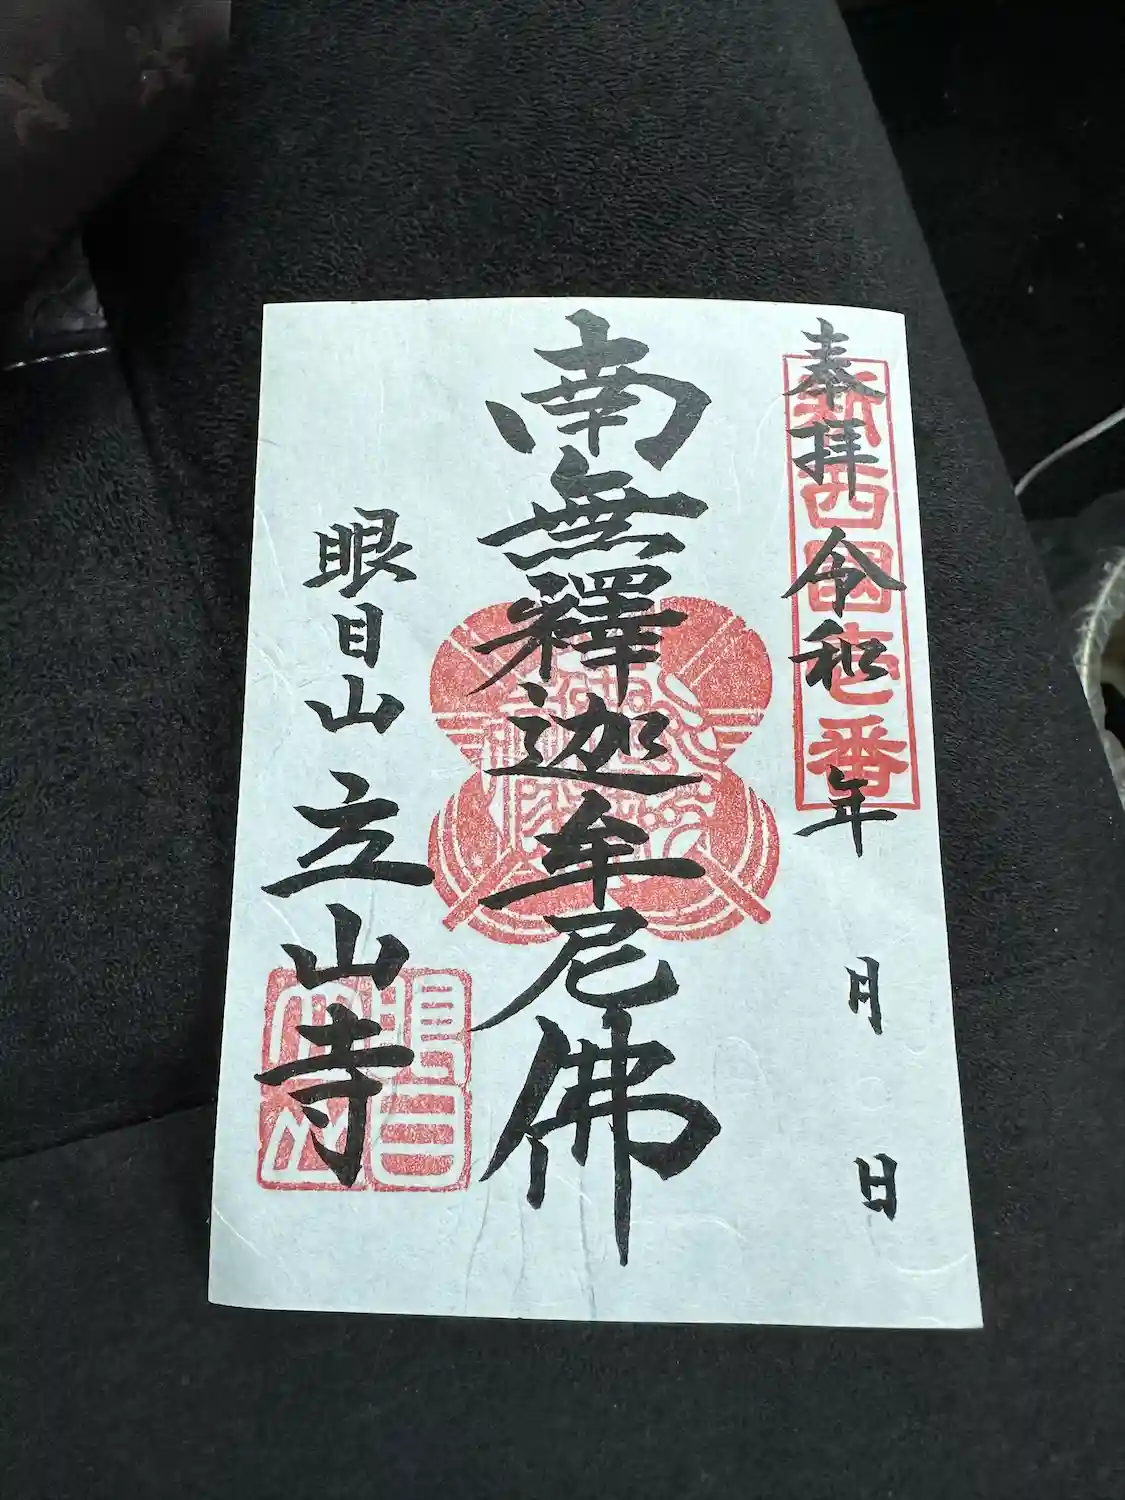 奉拝 令和 年 月 日
新西國壱番
南無釋迦牟尼佛
眼目山 立山寺
眼目山